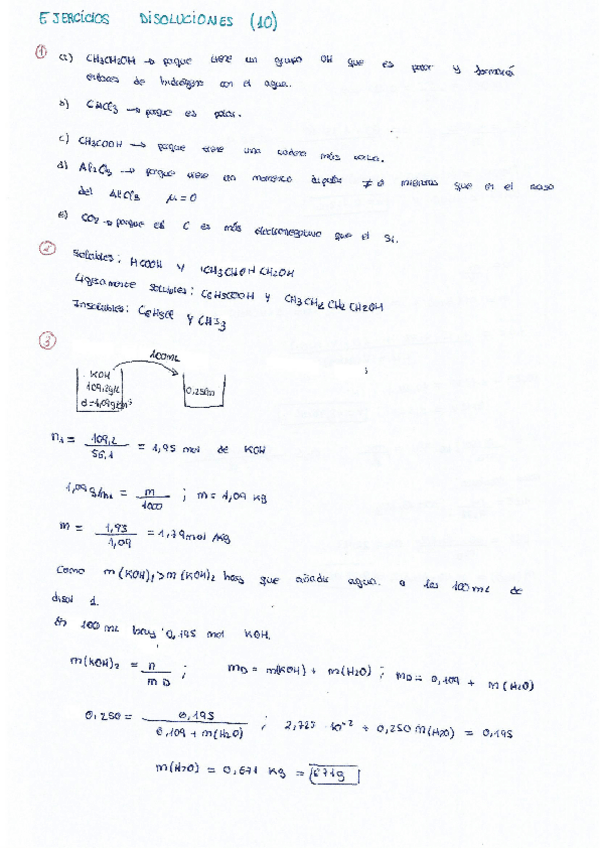 EJERCICIOS DISOLUCIONES (10)
① a) CH3CH2OH → porque tiene un grupo OH que es polar y formará
enlaces de hidrógeno con el agua.
b) CHCl3 → porque es polar.
c) CH3COOH → porque tiene una cadena más corta.
d) → porque tiene un momento dipolar ≠ 0 mientras que en el caso
del μ = 0
e) CO2 → porque el C es más electronegativo que el Si.
② Solubles: HCOOH y CH3CHOHCH2OH
Ligeramente solubles: C6H5COOH y CH3CH2CH2CH2OH
Insolubles: y
③
100mL
KOH
109,2g/L
d=1,09g/cm³
0,250m
n1 = 109,2 / 56,1 = 1,95 mol de KOH
1,09 g/mL = m / 1000 ; m = 1,09 kg
m = 1,95 / 1,09 = 1,79 mol/kg
Como m(KOH)1 > m(KOH)2 hay que añadir agua a los 100mL de
disol 1.
En 100mL hay 0,195 mol KOH.
m(KOH)2 = n / mD ; mD = m(KOH) + m(H2O) ; mD = 0,109 + m(H2O)
0,250 = 0,195 / 0,109 + m(H2O) ; 2,725 · 10⁻² + 0,250 m(H2O) = 0,195
m(H2O) = 0,671 kg = 671g